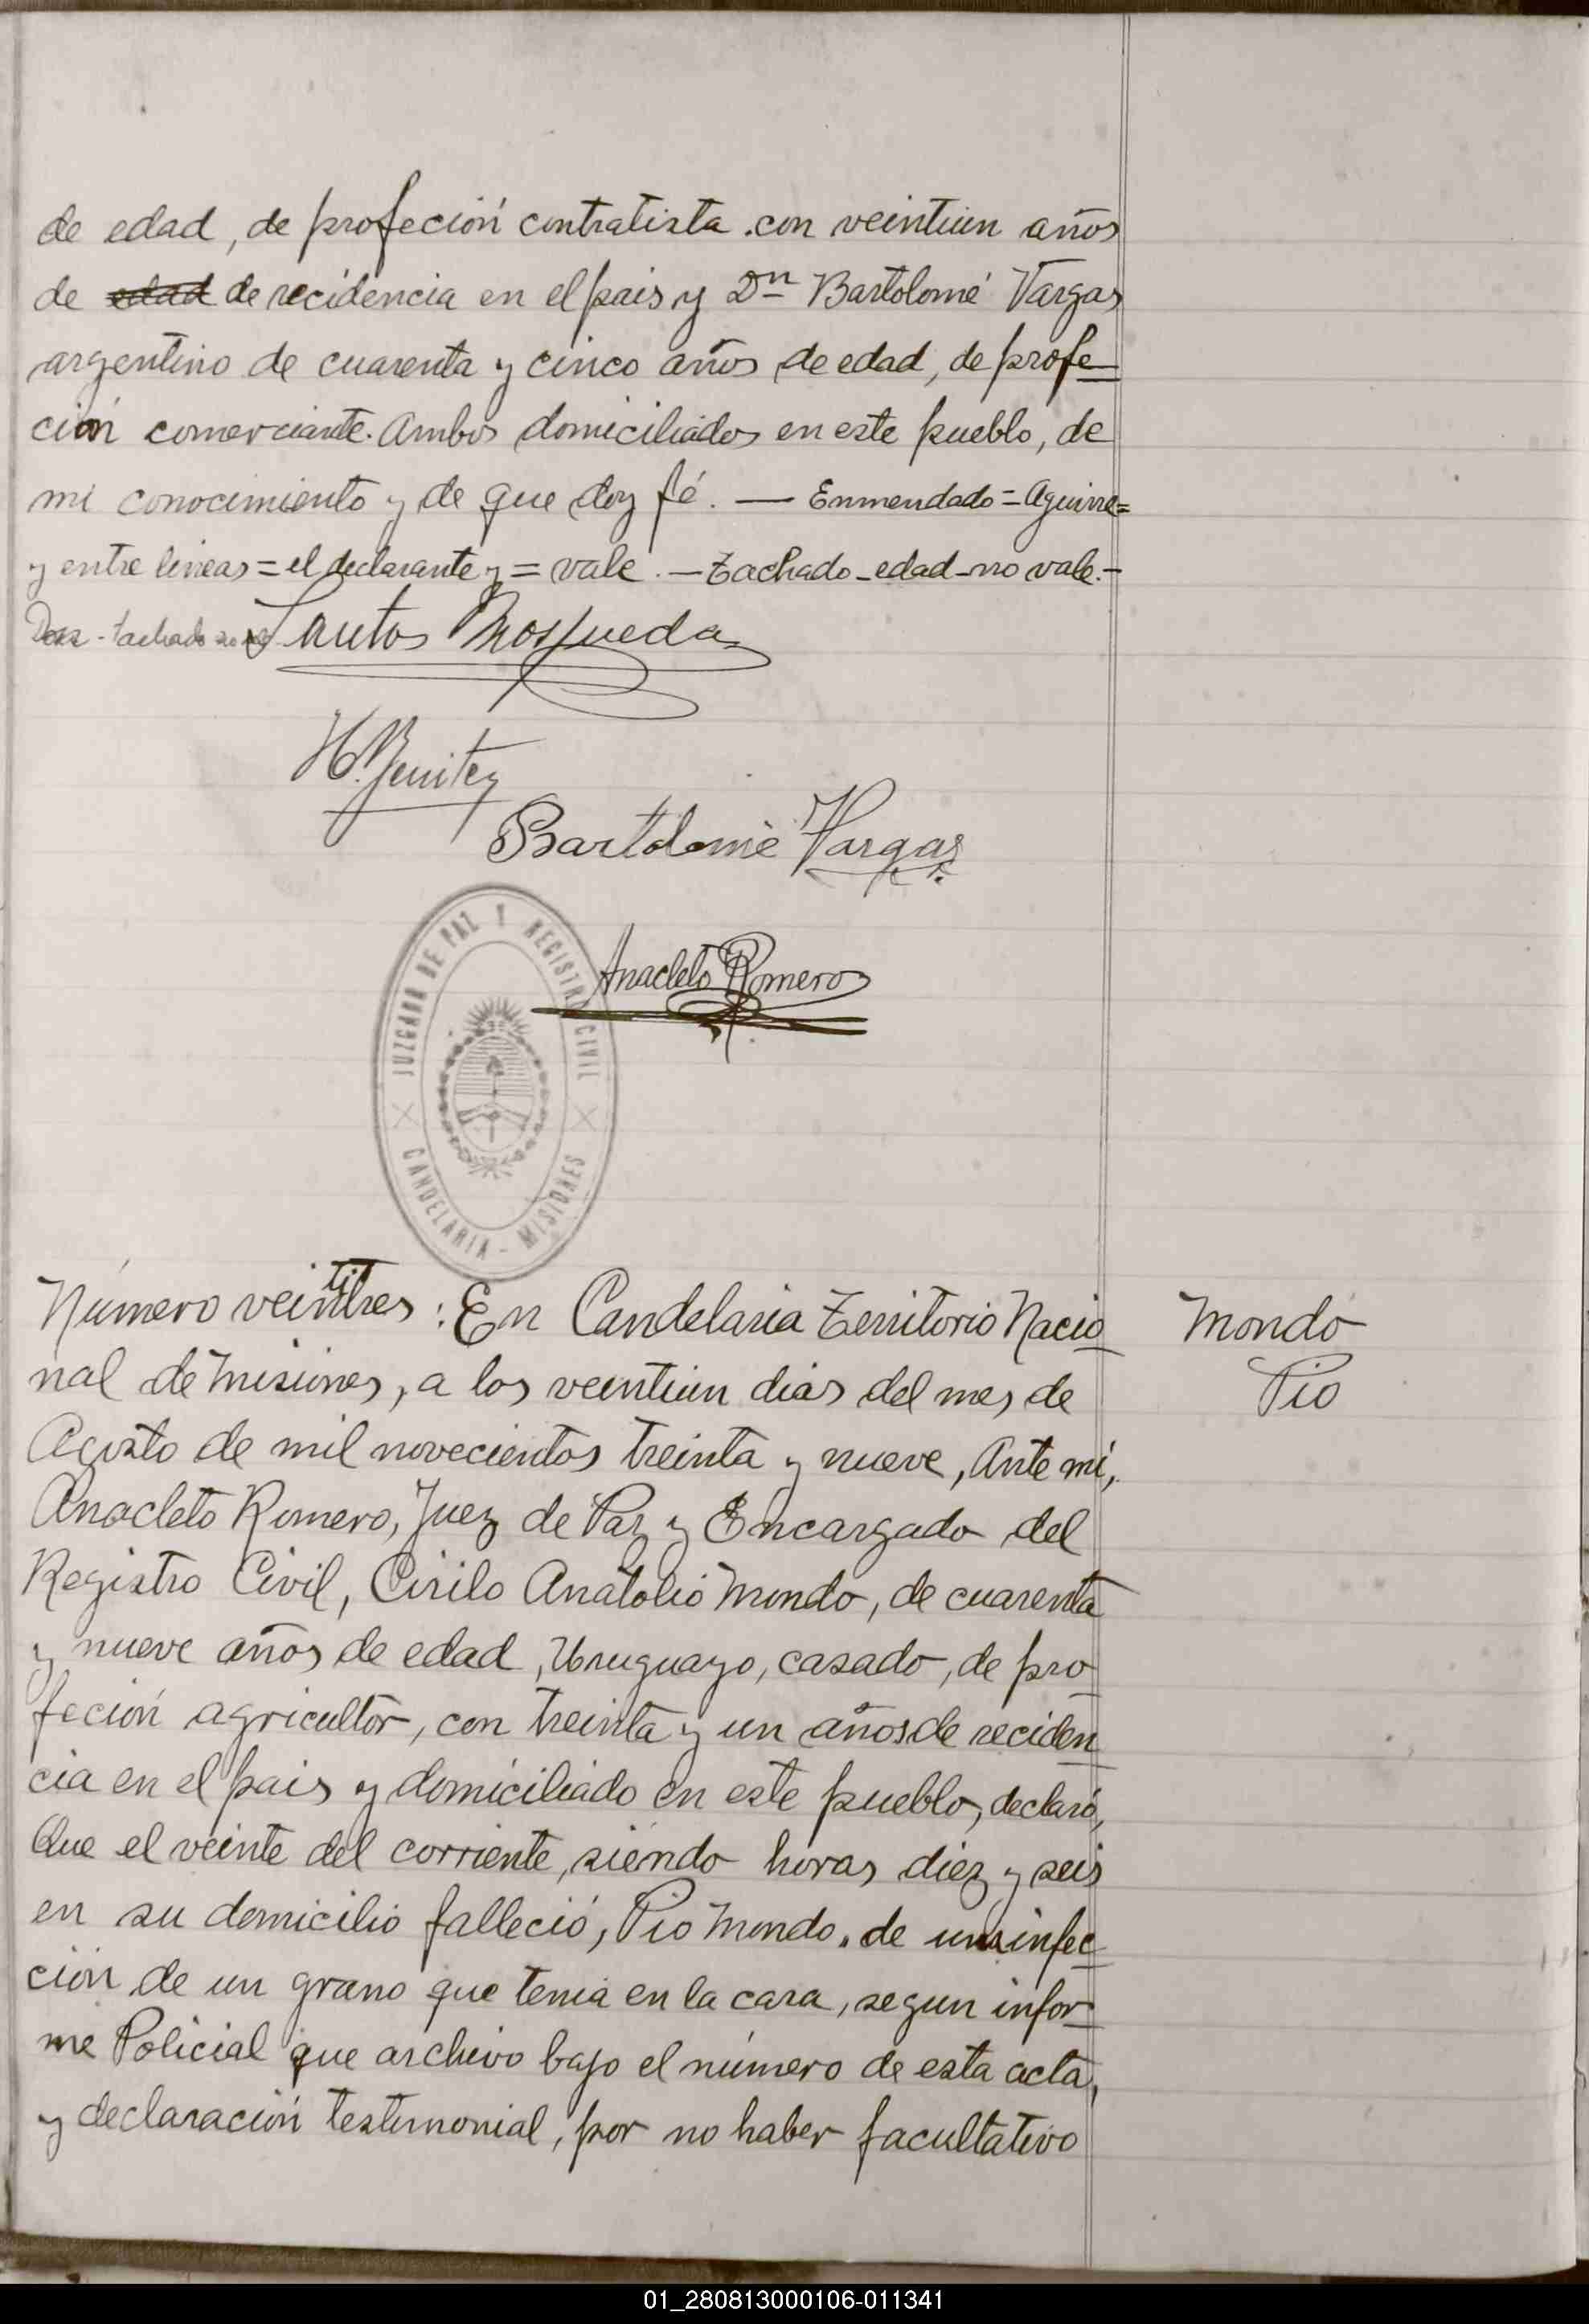 de edad, de profeción contratista con veintiun años
de edad de recidencia en el pais y Dn Bartolomé Vargas
argentino de cuarenta y cinco años de edad, de profe
ción comerciante. Ambos domiciliados en este pueblo, de
mi conocimiento y de que doy fé. — Enmendado = Aguirre =
y entre lineas = el declarante y = vale. — Tachado - edad - no vale. -
tachado no vale Santos Mosqueda
H. Benitez
Bartolomé Vargas
Anacleto Romero
JUZGADO DE PAZ Y REGISTRO CIVIL
CANDELARIA - MISIONES
Número veintitres : En Candelaria Territorio Nacio
nal de Misiones, a los veintiun dias del mes de
Agosto de mil novecientos treinta y nueve, Ante mi,
Anacleto Romero, Juez de Paz y Encargado del
Registro Civil, Cirilo Anatolio Mondo, de cuarenta
y nueve años de edad, Uruguayo, casado, de pro
feción agricultor, con treinta y un años de reciden
cia en el pais y domiciliado en este pueblo, declaró,
Que el veinte del corriente, siendo horas diez y seis
en su domicilio falleció, Pio Mondo, de una infec
ción de un grano que tenia en la cara, segun infor
me Policial que archivo bajo el número de esta acta,
y declaración testimonial, por no haber facultativo
Mondo
Pio
01_280813000106-011341